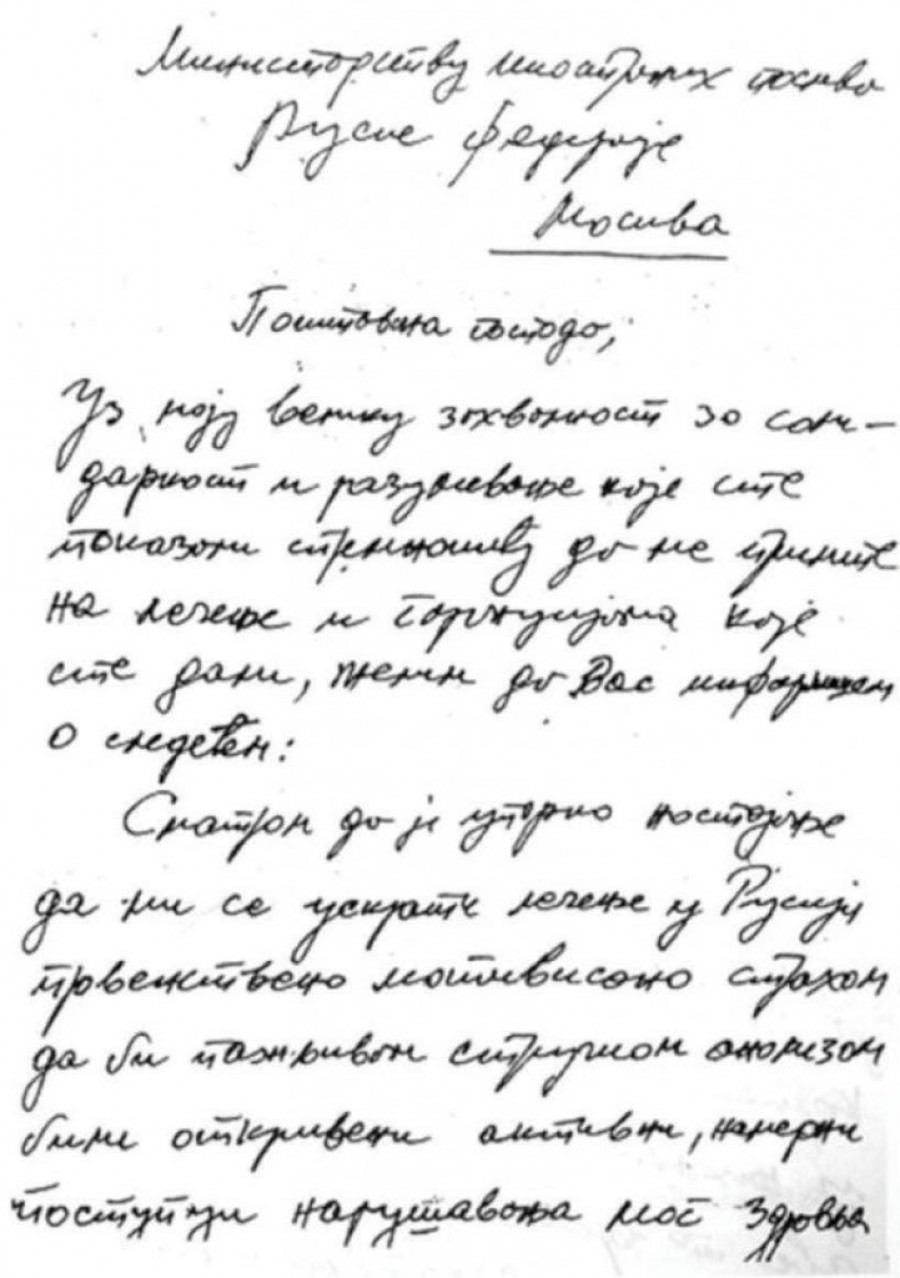 Министарству иностраних послова
Руске Федерације
Москва
Поштована господо,
Уз моју велику захвалност за соли-
дарност и разумевање које сте
показали спремношћу да ме примите
на лечење и гаранцијама које
сте дали, желим да Вас информишем
о следећем:
Сматрам да је упорно настојање
да ми се ускрати лечење у Русији
првенствено мотивисано страхом
да би пажљивом стручном анализом
били откривени активни, намерни
поступци нарушавања мог здравља